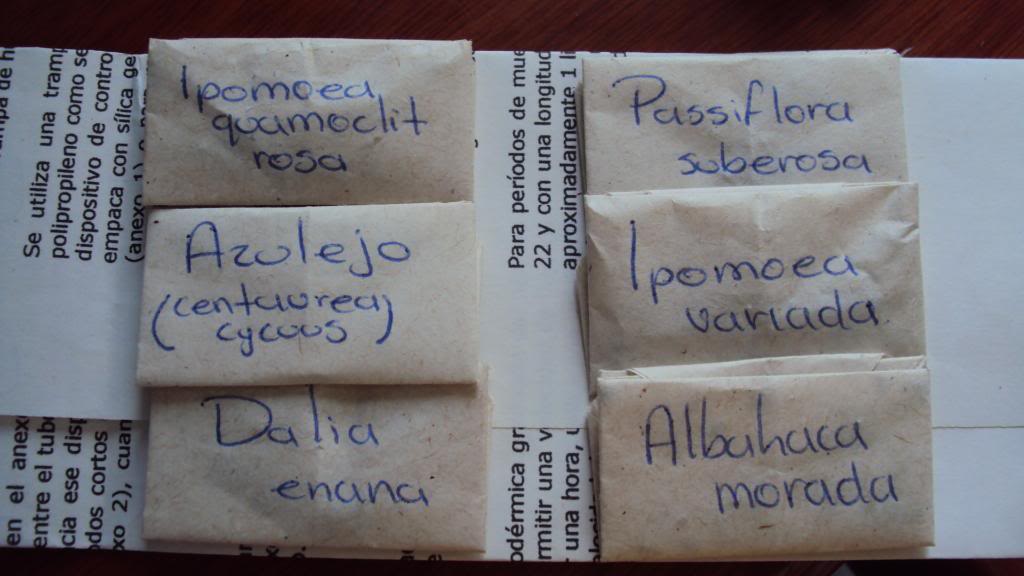 Ipomoea
quamoclit
rosa
Azulejo
(centaurea
cycous)
Dalia
enana
Passiflora
suberosa
Ipomoea
variada
Albahaca
morada
Se utiliza una tramp
polipropileno como se
dispositivo de contro
empaca con sílica ge
(anexo 1)
Para períodos de mue
22 y con una longitud
aproximadamente 1 li
en el anexo
entre el tubo
ncia ese disp
odos cortos
xo 2), cuan
odérmica gr
rmitir una v
r una hora,